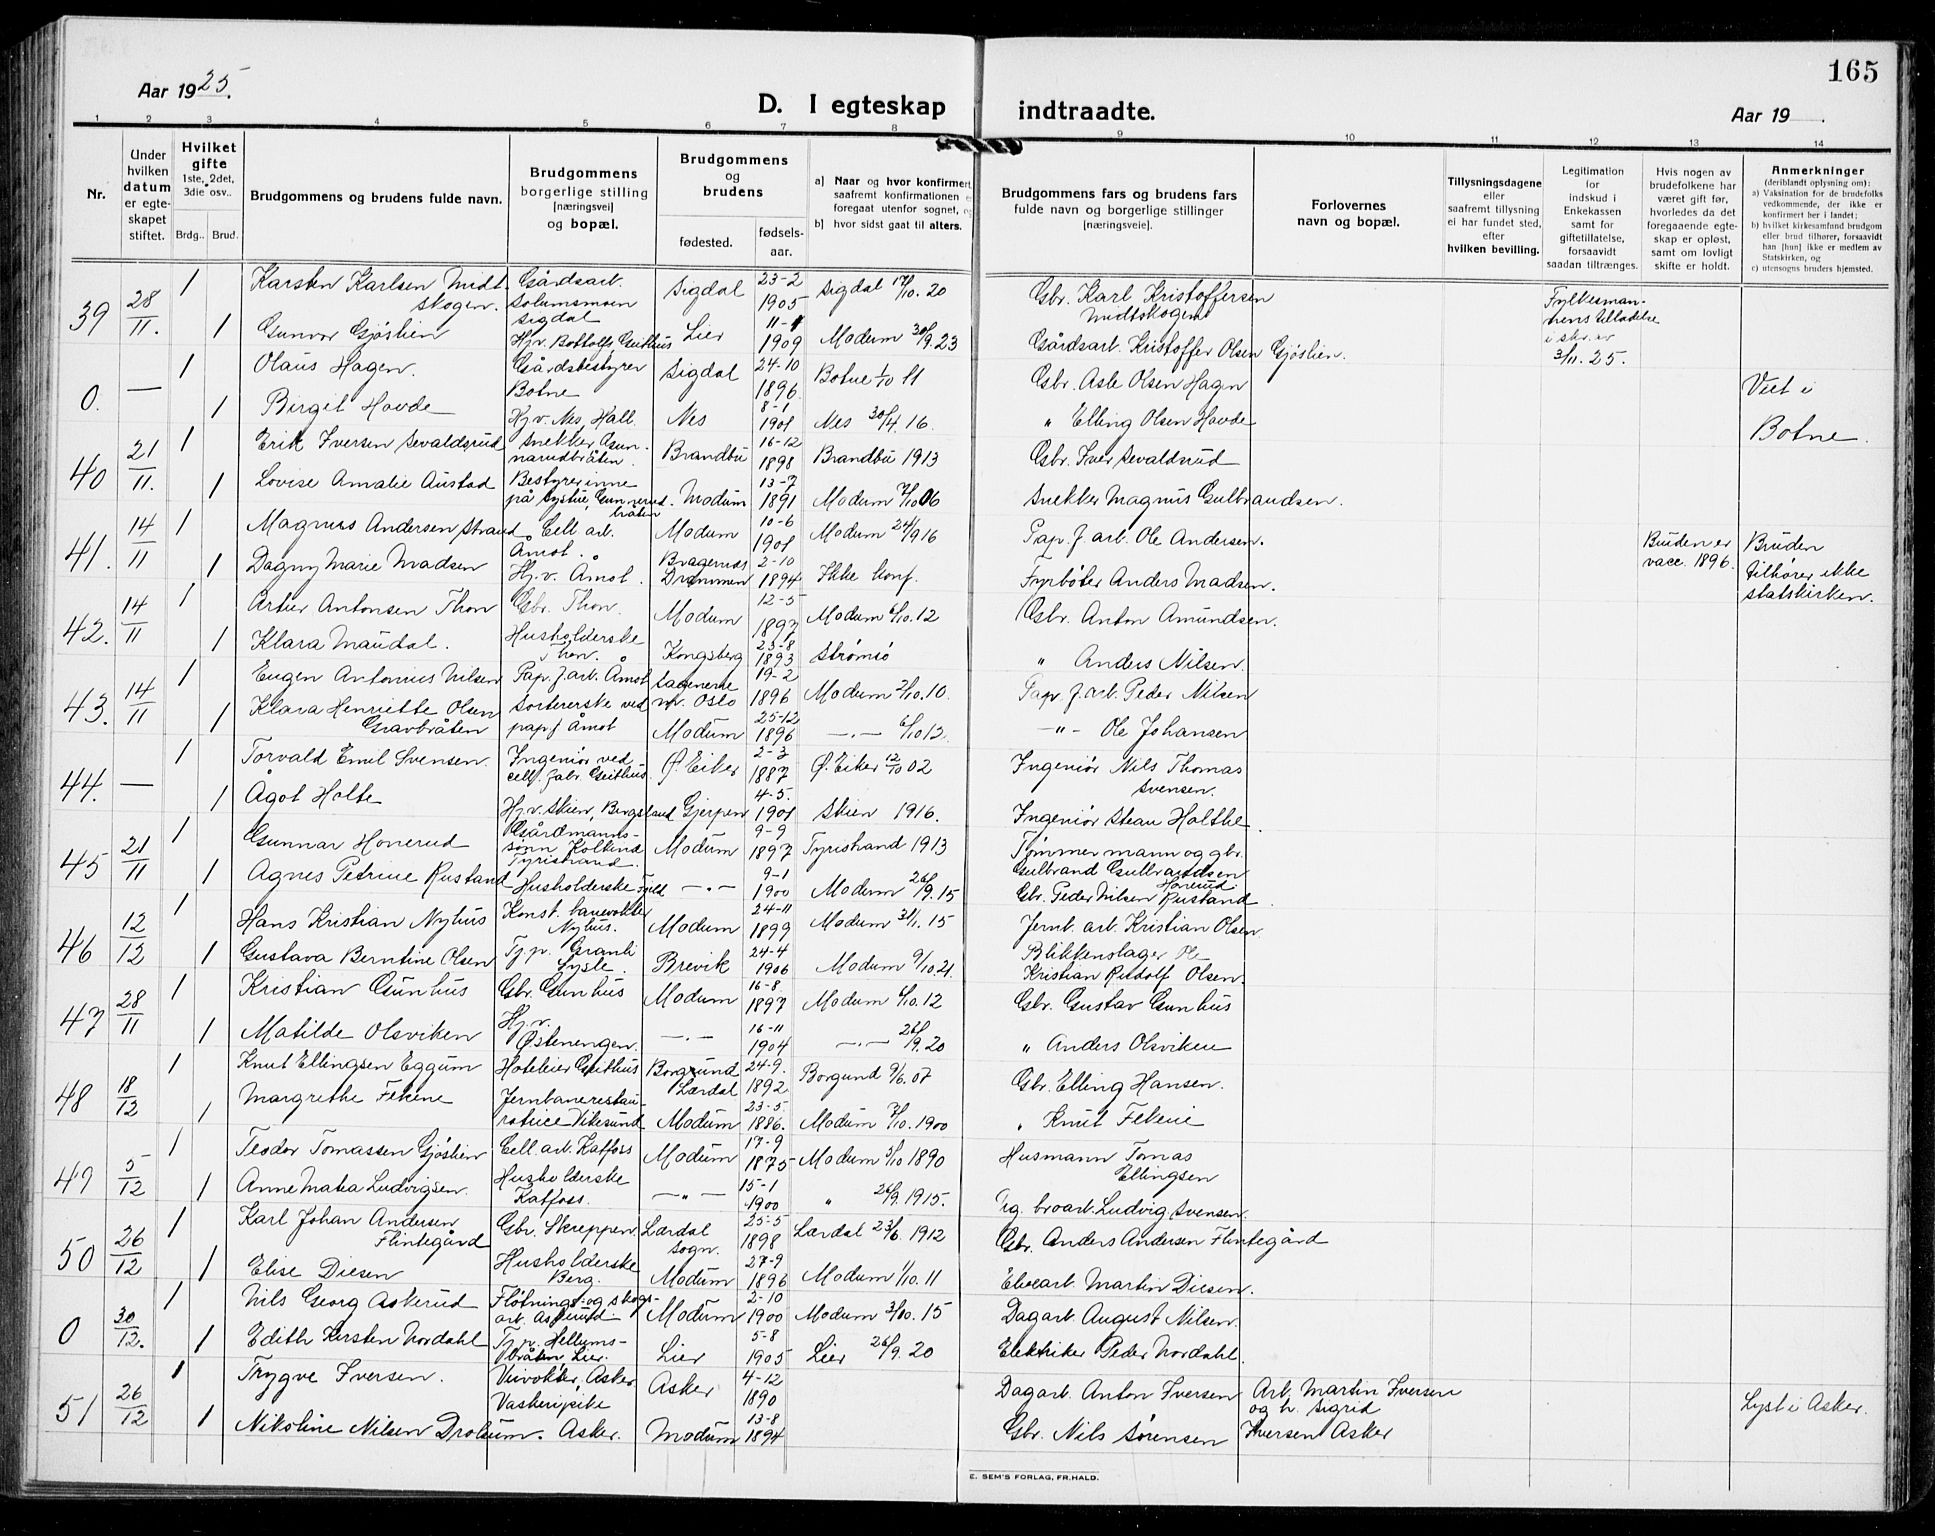 165
Aar 1925.
D. I egteskap indtraadte.
Aar 19 .
1 2 3 4 5 6 7 8 9 10 11 12 13 14
Nr.
Under hvilken datum er egteskapet stiftet.
Hvilket gifte 1ste, 2det, 3die osv..
Brdg.. Brud.
Brudgommens og brudens fulde navn.
Brudgommens borgerlige stilling [næringsvei] og bopæl.
Brudgommens og brudens
fødested.
fødsels-aar.
a] Naar og hvor konfirmert, saafremt konfirmationen e foregaat utenfor sognet, og
b] hvor sidst gaat til alters.
Brudgommens fars og brudens fars fulde navn og borgerlige stillinger [næringsveie].
Forlovernes navn og bopæl.
Tillysningsdagene eller saafremt tillysning ei har fundet sted, efter hvilken bevilling.
Legitimation for indskud i Enkekassen samt for giftetillatelse, forsaavidt saadan tiltrænges.
Hvis nogen av brudefolkene har været gift før, hvorledes da det foregaaende egteskap er opløst, samt om lovligt skifte er holdt.
Anmerkninger (deriblandt oplysning om):
a) Vaksination for de brudefolks vedkommende, der ikke er konfirmert her i landet;
b) hvilket kirkesamfund brudgom eller brud tilhører, forsaavidt han [hun] ikke er medlem av Statskirken, og
c) utensogns bruders hjemsted.
39 28/11. 1 Karsten Karlsen Midtskogen. Gårdsarb. Solumsmoen Sigdal Sigdal 23-2 1905 Sigdal 17/10. 20 Gbr. Karl Kristoffersen Midtskogen Fylkesmannens tilladelse i skr. av 3/11. 25.
1 Gunvor Gjøslien Hj.v. Bottolfs Geithus Lier 11-1 1909 Modum 30/9. 23 Gårdsarb. Kristoffer Olsen Gjøslien.
0. — 1 Olaus Hagen. Gårdsbestyrer Botne Sigdal 24-10 1896. Botne 1/10 11 Gbr. Asle Olsen Hagen Viet i Botne.
1 Birgit Hovde Hj.v. Nes, Hall. Nes 8-1 1901 Nes 30/4. 16. " Elling Olsen Hovde
40 21/11. 1 Erik Iversen Sevaldsrud Snekker Gunnarudbråten. Brandbu 16-12 1898 Brandbu 1913 Gbr. Iver Sevaldsrud
1 Lovise Amalie Austad Bestyrerinne på systue, Gunnerud.bråten Modum 13-7 1891 Modum 7/10 06 Snekker Magnus Gulbrandsen.
41. 14/11 1 Magnus Andersen Strand Cell. arb. Åmot. Modum 10-6 1901 Modum 24/9 16 Pap. f. arb. Ole Andersen. Bruden er vacc. 1896. Bruden tilhører ikke statskirken.
1 Dagny Marie Madsen Hj.v. Åmot. Bragernes Drammen 2-10 1894 Ikke konf. Fyrbøter Anders Madsen.
42. 14/11 1 Artur Antonsen Thon Gbr. Thon. Modum 12-5 1897 Modum 6/10. 12 Gbr. Anton Amundsen.
1 Klara Maudal. Husholderske Thon. Kongsberg 23-8 1893 Strømsø " Anders Nilsen.
43. 14/11 1 Eugen Antonius Nilsen Pap. f. arb. Åmot Sagenerne nv. Oslo 19-2 1896 Modum 2/10. 10. Pap. f. arb. Peder Nilsen
1 Klara Henriette Olsen Gravbråten Sortererske ved papf Åmot Modum 25-12 1896 —.— 6/10 12. —"— Ole Johansen
44. — 1 Torvald Emil Svensen. Ingeniør ved cell. fabr. Geithus. Ø. Eiker 2-3 1887 Ø. Eiker 12/10 02 Ingeniør Nils Thomas Svensen.
1 Ågot Holte Hj.v. Skien, Bergsland Gjerpen 4-5. 1901 Skien 1916. Ingeniør Stean Holthe.
45 21/11 1 Gunnar Honerud Gårdmannssønn Koltind Tyristrand. Modum 9-9 1897 Tyristrand 1913 Tømmermann og gbr. Gulbrand Gulbrandsen Honerud
1 Agnes Petrine Rustand Husholderske Fjeld —.— 9-1 1900 Modum 26/9. 15 Gbr. Peder Nilsen Rustand.
46 12/12 1 Hans Kristian Nyhus Konst. banevokter Nyhus. Modum 24-11 1899 Modum 31/1. 15 Jernb. arb. Kristian Olsen
1 Gustava Berntine Olsen Tj.p. Granli Sysle. Brevik 24-4 1906 Modum 9/10. 21. Blikkenslager Ole Kristian Rudolf Olsen.
47 28/11 1 Kristian Gunhus Gbr. Gunhus Modum 16-8. 1897 Modum 6/10. 12 Gbr. Gustav Gunhus
1 Matilde Olsviken Hj.v. Østenengen. —.— 16-11 1904 —.— 26/9. 20 " Anders Olsviken
48 18/12 1 Knut Ellingsen Eggum Hoteleier Geithus Borgund Lærdal 24-9. 1892 Borgund 9/6. 07 Gbr. Elling Hansen.
1 Margrethe Fekene Jernbanerestauratrice Vikesund Modum 23-5. 1886. Modum 7/10. 1900 " Knut Fekene
49 5/12 1 Teodor Tomassen Gjøslien Cell. arb. Katfoss Modum 17-9 1875 Modum 5/10 1890 Husmann Tomas Ellingsen
1 Anne Matea Ludvigsen. Husholderske Katfoss. —"— 15-1 1900 " 26/9. 1915. Tg. broarb. Ludvig Svensen.
50 26/12 1 Karl Johan Andersen Flintegård Gbr. Skreppen Lærdal Sogn. 25-5 1898 Lærdal 23/6. 1912 Gbr. Anders Andersen Flintegård
1 Elise Diesen Husholderske Berg. Modum 27-9 1896 Modum 1/10. 11 Elvearb. Martin Diesen.
0 30/12. 1 Nils Georg Askerud Fløtnings- og skogsarb. Askerud. Modum 2-10 1900 Modum 3/10. 15 Dagarb. August Nilsen.
1 Edith Kirsten Nordahl Tj.p. Hellumsbråten, Lier. Lier 5-8 1905 Lier 26/9. 20 Elektriker Peder Nordahl.
51 26/12 1 Trygve Iversen. Veivokter, Asker Asker 4-12 1890 Dagarb. Anton Iversen Arb. Martin Iversen og h. Sigrid Iversen Asker Lyst i Asker.
1 Nikoline Nilsen Drolsum. Vaskeripike Asker. Modum 13-8 1894 Gbr. Nils Sørensen
E. SEM'S FORLAG, FR.HALD.